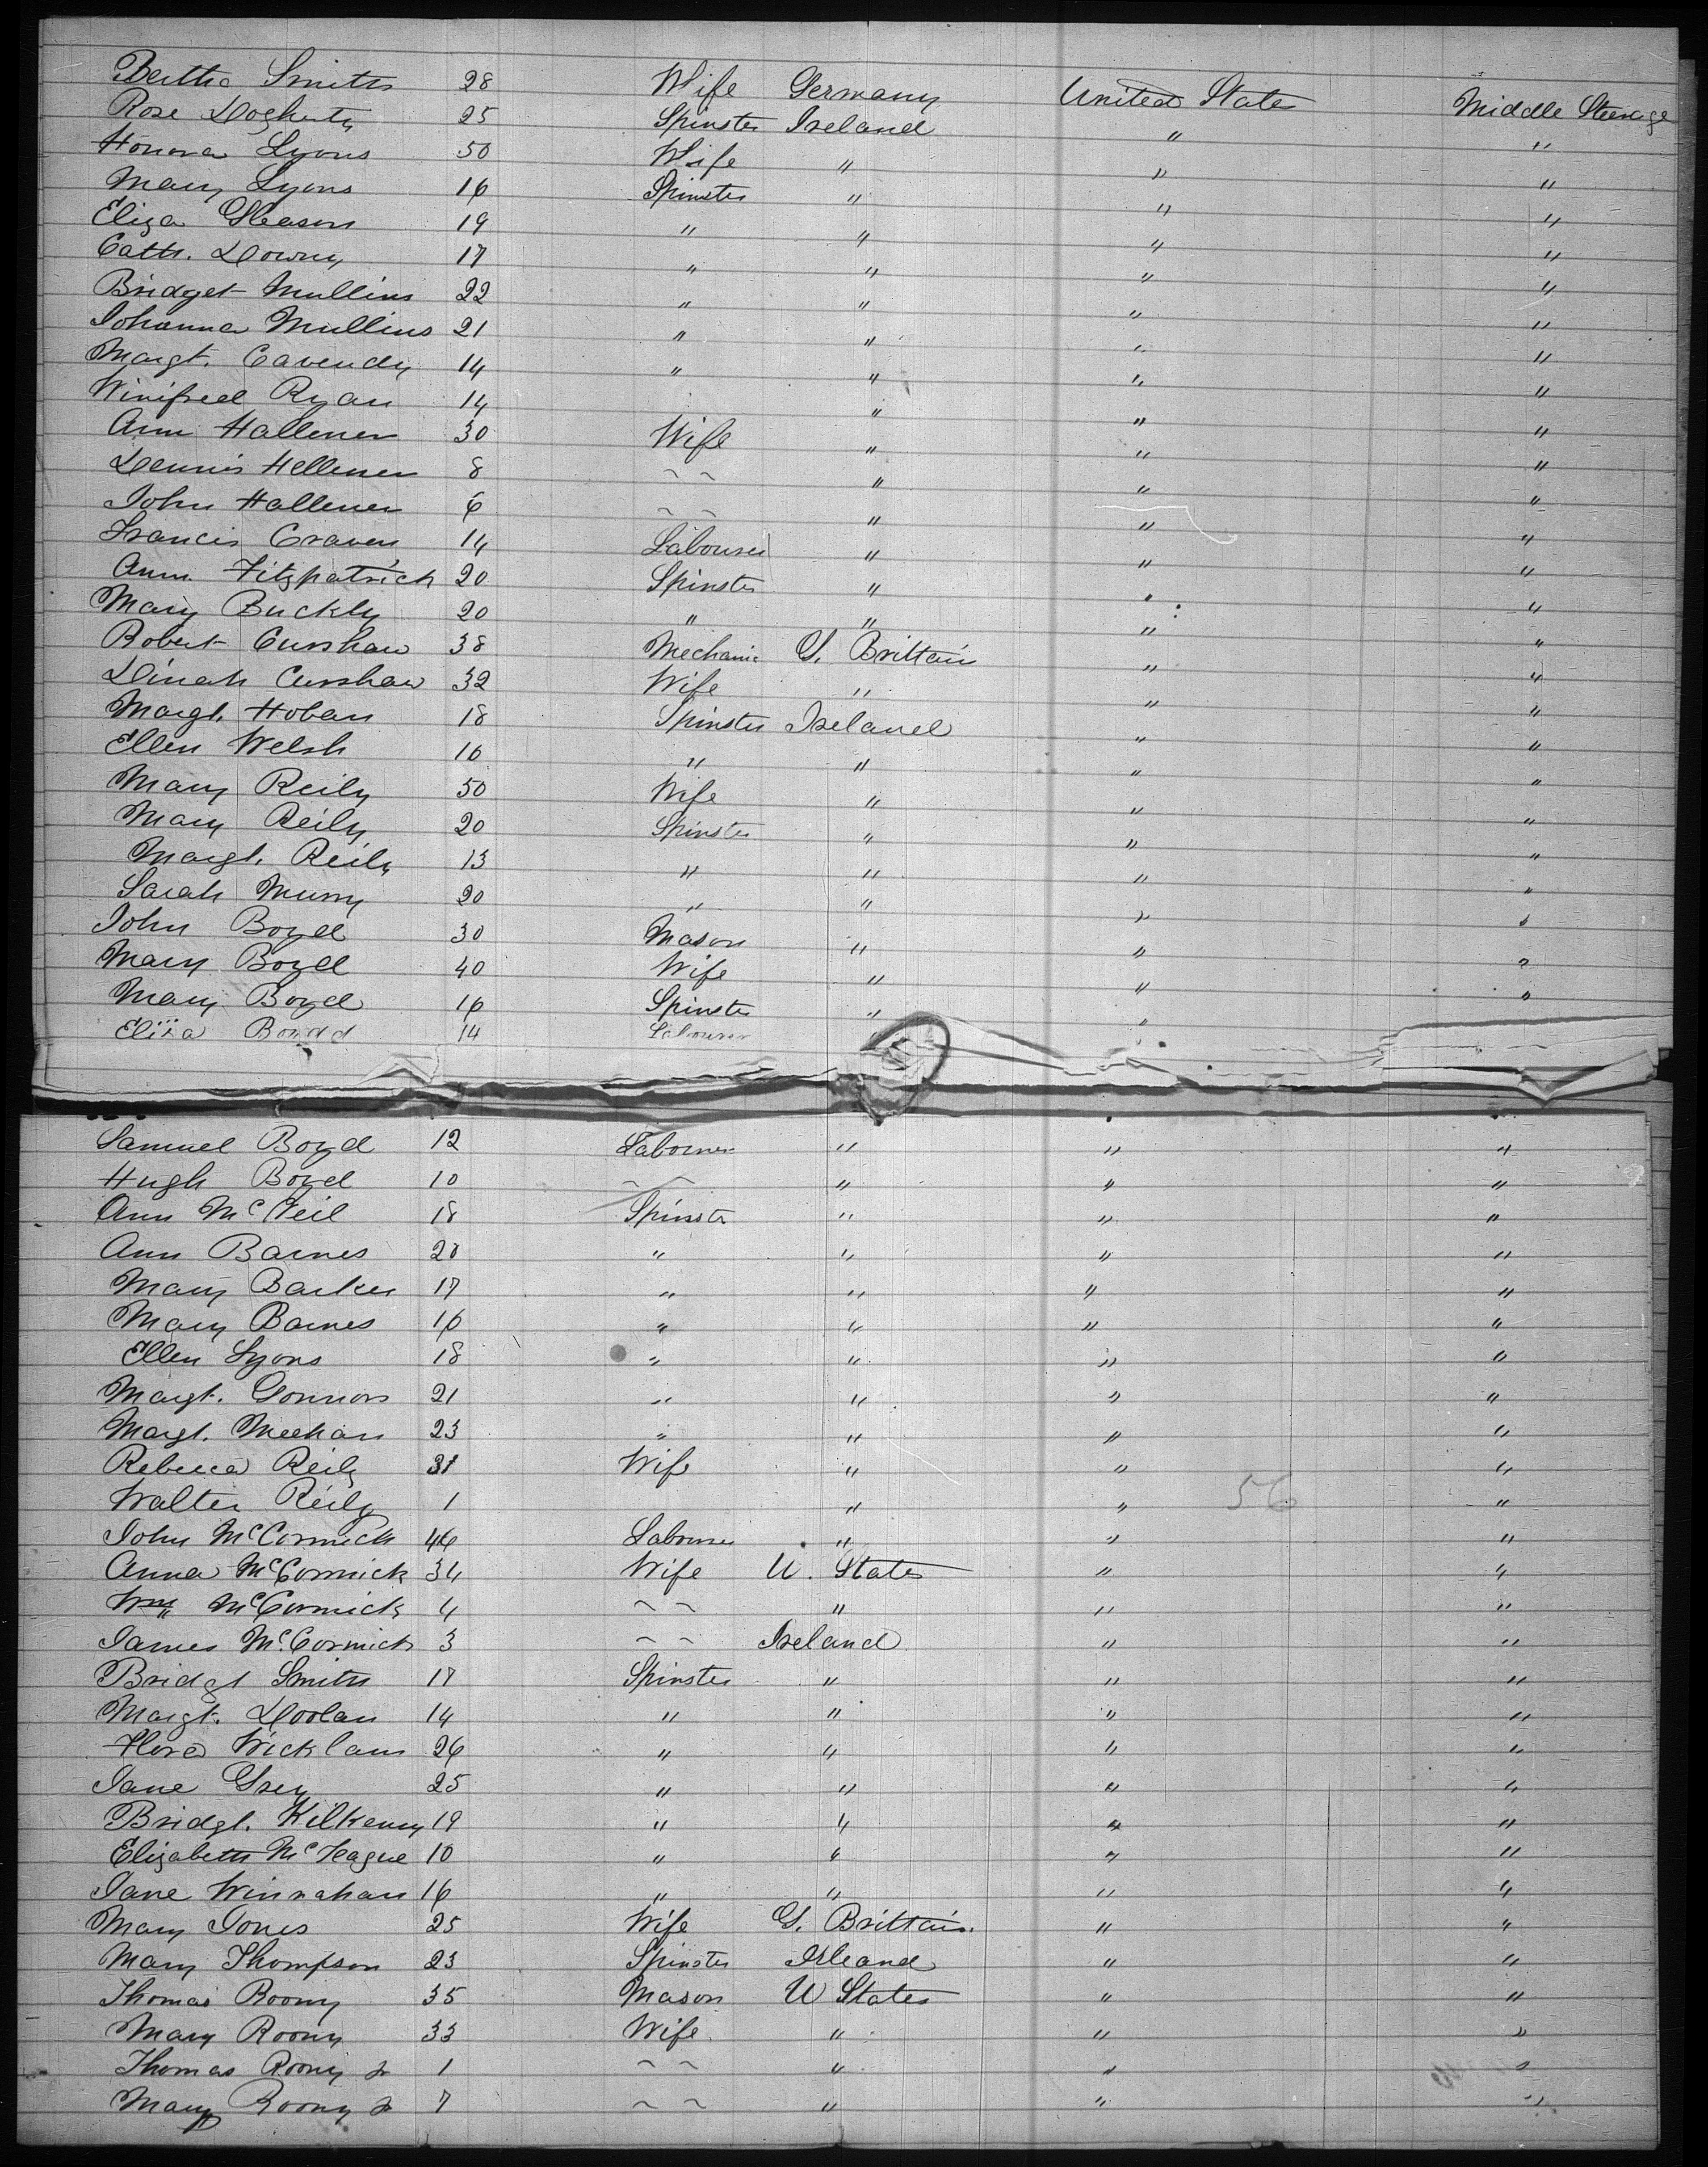 Bertha Smith 28 Wife Germany United States Middle Steerage
Rose Dogherty 25 Spinster Ireland " "
Honora Lyons 50 Wife " " "
Mary Lyons 16 Spinster " " "
Eliza Gleason 19 " " " "
Cath. Downy 17 " " " "
Bridget Mullins 22 " " " "
Johanna Mullins 21 " " " "
Margt. Cavendy 14 " " " "
Winifred Ryan 14 " " "
Ann Hallener 30 Wife " " "
Dennis Hellener 8 ~ ~ " " "
John Hallener 6 ~ ~ " " "
Francis Craven 14 Labourer " " "
Ann Fitzpatrick 20 Spinster " " "
Mary Buckly 20 " " " "
Robert Curshaw 38 Mechanic G. Brittain " "
Dinah Curshaw 32 Wife " " "
Margt. Hoban 18 Spinster Ireland " "
Ellen Welsh 16 " " " "
Mary Reily 50 Wife " " "
Mary Reily 20 Spinster " " "
Margt. Reily 13 " " " "
Sarah Murry 20 " " " "
John Boyd 30 Mason " " "
Mary Boyd 40 Wife " " "
Mary Boyd 16 Spinster " " "
Boydd 14 Labourer "
Samuel Boyd 12 Labourer " " "
Hugh Boyd 10 ~ ~ " " "
Ann McNeil 18 Spinstr " " "
Ann Barnes 20 " " " "
Mary Barker 17 " " " "
Mary Barnes 16 " " " "
Ellen Lyons 18 " " " "
Margt. Connors 21 " " " "
Margt. Meehan 23 " " " "
Rebecca Reily 31 Wife " " "
Walter Reily 1 " " 56 "
John McCormick 46 Labourer " " "
Anna McCormick 34 Wife U. States " "
Wm McCormick 4 ~ ~ " " "
James McCormick 3 ~ ~ Ireland " "
Bridgt Smith 17 Spinster " " "
Margt. Doolan 14 " " " "
Flora Wicklam 26 " " " "
Jane Grey 25 " " " "
Bridgt. Kilkenny 19 " " " "
Elizabeth McTeague 10 " " " "
Jane Winnahan 16 " " " "
Mary Jones 25 Wife G. Brittain " "
Mary Thompson 23 Spinster Irleand " "
Thomas Roony 35 Mason U States " "
Mary Roony 33 Wife " " "
Thomas Roony Jr 1 ~ ~ " " "
Mary Roony Jr 7 ~ ~ " " "